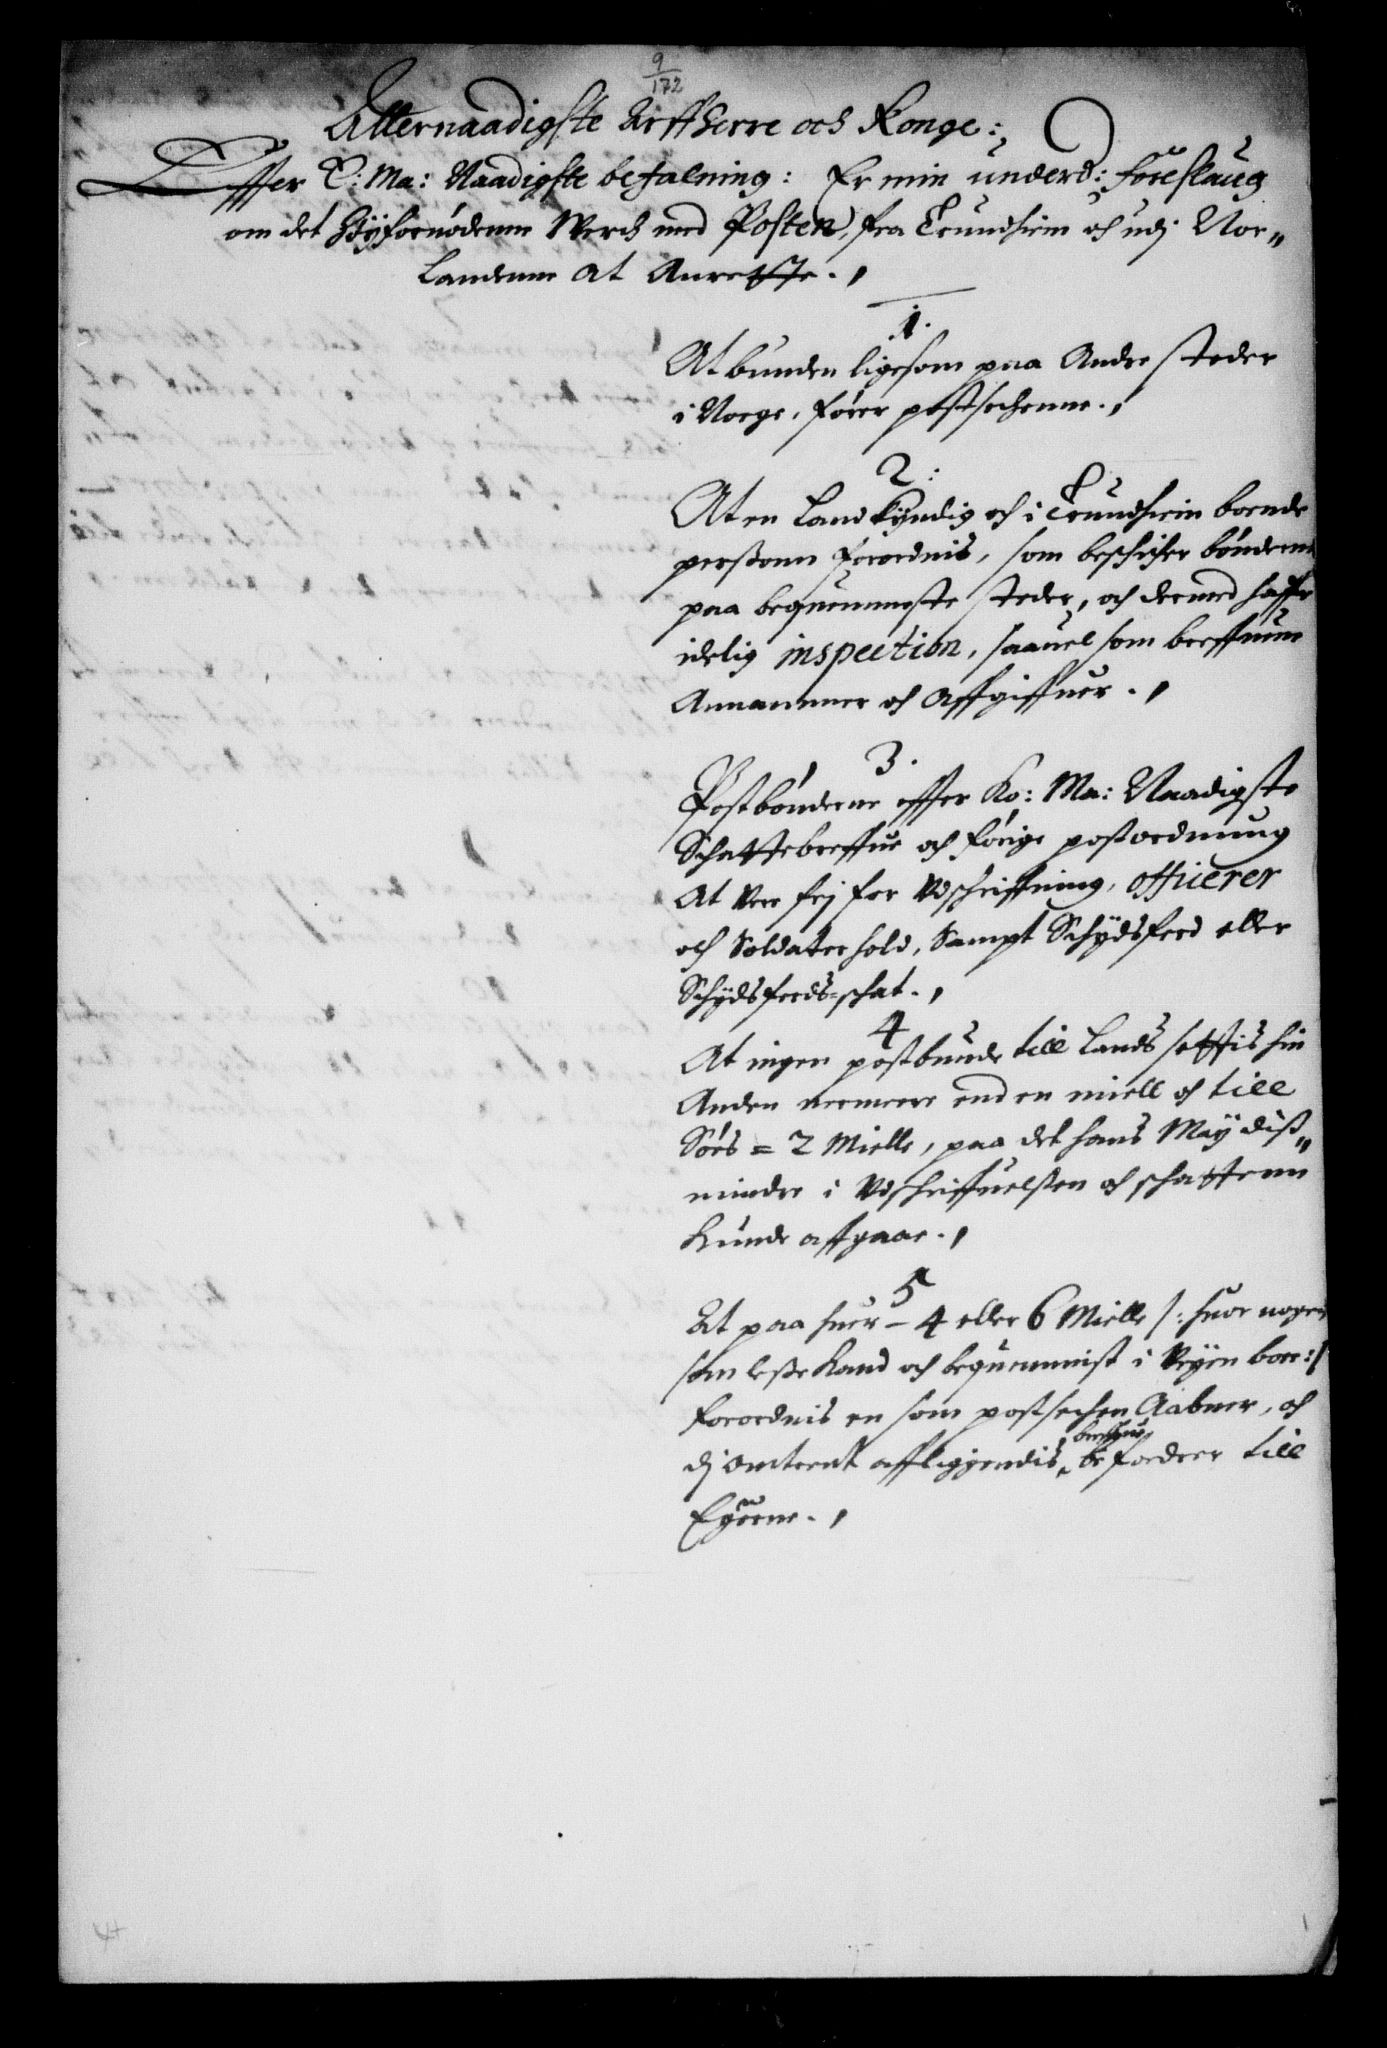 9
172
Allernaadigste Arffherre och Konge:
Effter E: Ma: Naadigste befalning: Er min underd: foreslaug
om det Høyfornødenne Werch med Posten, fra Trundhiem och udj Nor„
Landenne at Anrette.
1.
At bunden ligesom paa Andre steder
i Norge, fører postsechenne.
2:
At en Landkyndig och i Trundhiem boende
perssonn forordnis, som beschicher bønderne
paa beqvemmeste steder, och dermed haffr
idelig inspection, saauel som breffuene
Annammer och Affgiffuer.
3.
Postbønderne effter Ko: Ma: Naadigste
Schattebreffue och forige postordnung
At vere frj for Vdschriffning, officerer
och Soldaterhold, Sampt Schydsferd eller
Schydsferds=schat.
4
At ingen postbunde till Lands settis hin
Anden nermere end en miell och till
Søes = 2 Mielle, paa det hans May diss„
mindre i Vdschriffuelsen och schattenn
Kunde affgaae.
5
At paa huer - 4 eller 6 Mielle /: huor nogen
som lesse Kand och beqvemmist i Veyen boer:/
forordnis en som postsechen Aabner, och
dj omtrent affliggendis breffue befordrer till
Eyerne.